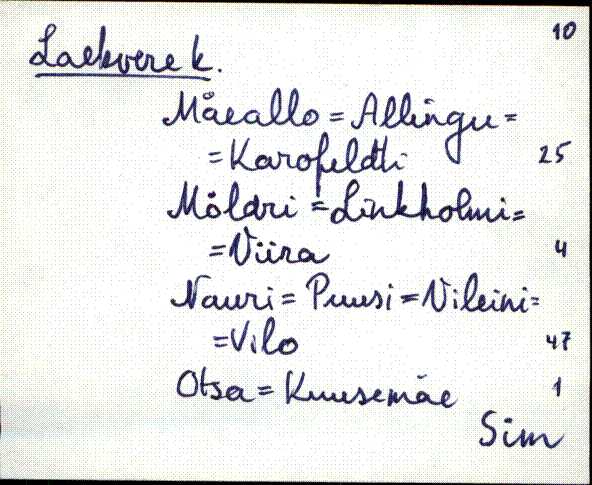 10
Laekvere k.
Mäeallo = Allingu =
= Karofeldti 25
Möldri = Linkholmi =
= Viira 4
Nauri = Puusi = Vileini =
= Vilo 47
Otsa = Kuusemäe 1
Sim